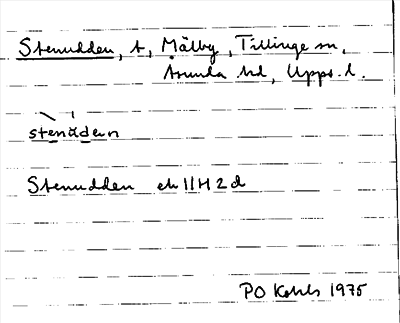 Stenudden, t, Mälby, Tillinge sn,
Åsunda hd, Upps. l.
stenùdén
Stenudden ek 11H2d
PO Kohls 1975